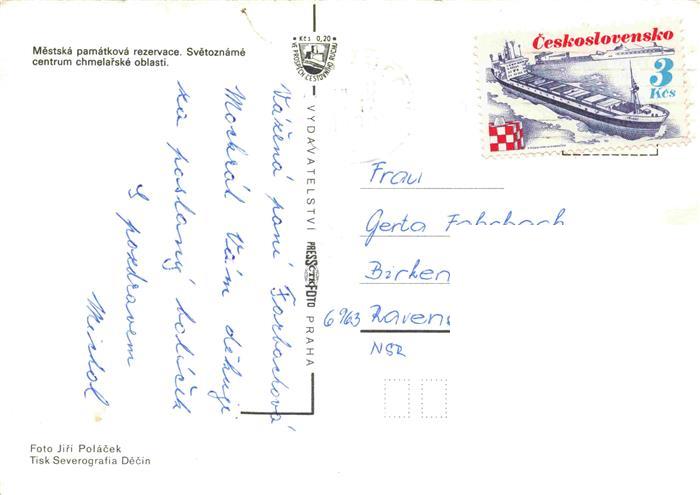 Městská památková rezervace. Světoznámé
centrum chmelařské oblasti.
Kčs 0,20
VE PROSPĚCH CESTOVNÍHO RUCHU
Vážená paní Farbachová
Mockrát Vám děkuji
za poslaný balíček
S pozdravem
VYDAVATELSTVÍ PRESSFOTO PRAHA
ČTK
Československo
3
Kčs
Frau
Gerta Fahrbach
Birken
6963 Ravens
NSR
Foto Jiří Poláček
Tisk Severografia Děčín